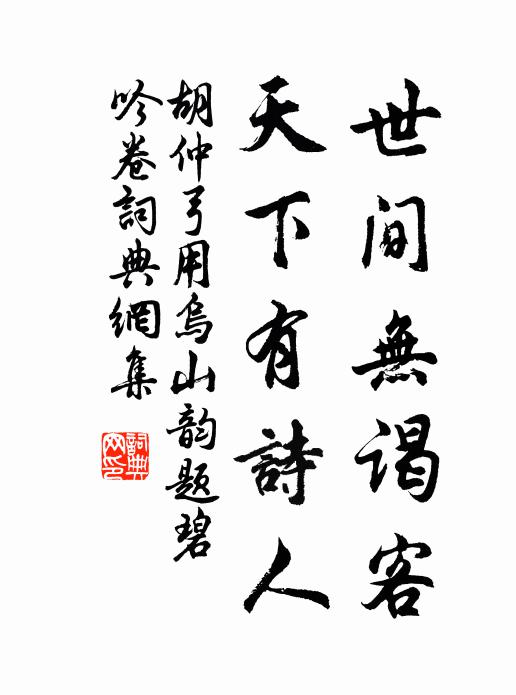 世间無谒客
天下有詩人
胡仲弓用烏山韵题碧
吟卷詞典網集
詞典網印